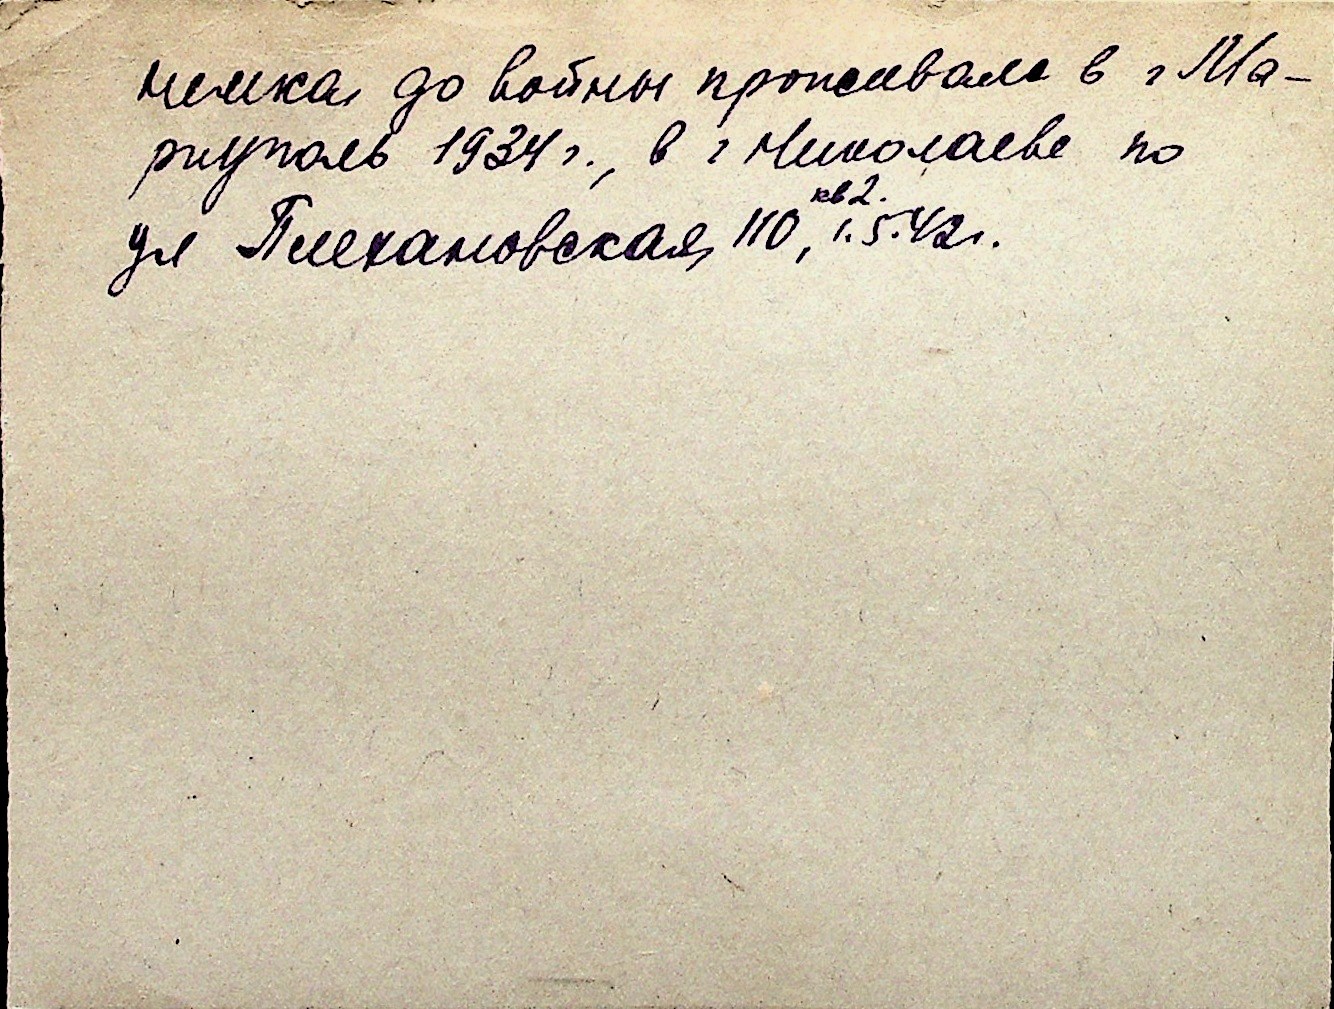 немка, до войны проживала в г Ма-
риуполь 1934 г., в г Николаеве по
кв 2.
ул Плехановская, 110, 1.5.42г.